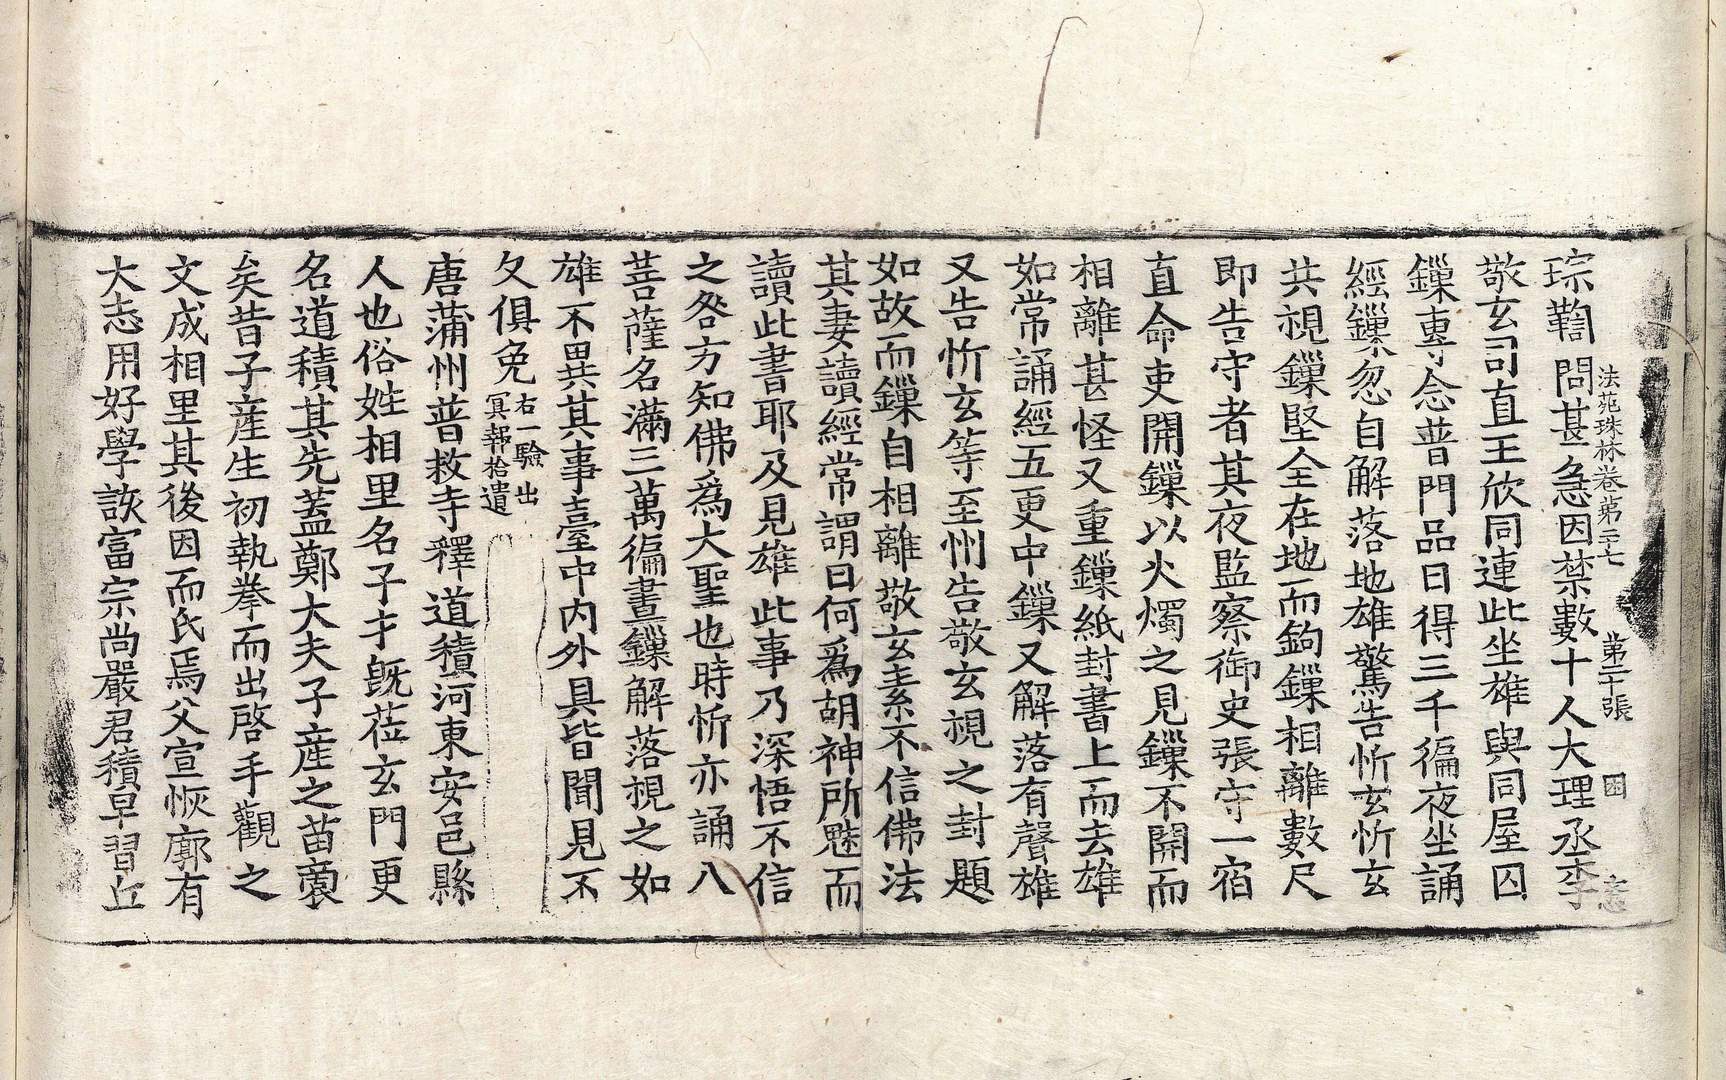 法苑珠林卷第二十七　第二十張　困
琮鞫問甚急因禁數十人大理丞李
敬玄司直王欣同連此坐雄與同屋囚
鏁專念普門品日得三千徧夜坐誦
經鏁忽自解落地雄驚告忻玄忻玄
共視鏁堅全在地而鉤鏁相離數尺
即告守者其夜監察御史張守一宿
直命吏開鏁以火燭之見鏁不開而
相離甚怪又重鏁紙封書上而去雄
如常誦經五更中鏁又解落有聲雄
又告忻玄等至州告敬玄視之封題
如故而鏁自相離敬玄素不信佛法
其妻讀經常謂曰何爲胡神所魅而
讀此書耶及見雄此事乃深悟不信
之咎方知佛爲大聖也時忻亦誦八
菩薩名滿三萬徧晝鏁解落視之如
雄不異其事臺中内外具皆聞見不
久俱免右一驗出冥報拾遺
唐蒲州普救寺釋道積河東安邑縣
人也俗姓相里名子才旣莅玄門更
名道積其先蓋鄭大夫子産之苗裔
矣昔子産生初執拳而出啓手觀之
文成相里其後因而氏焉父宣恢廓有
大志用好學該富宗尚嚴君積早習丘